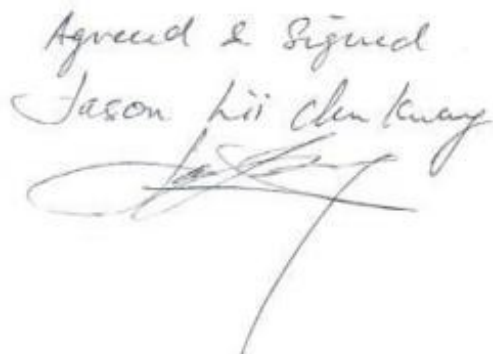 Agreed & Signed
Jason Lii Chen Kuang